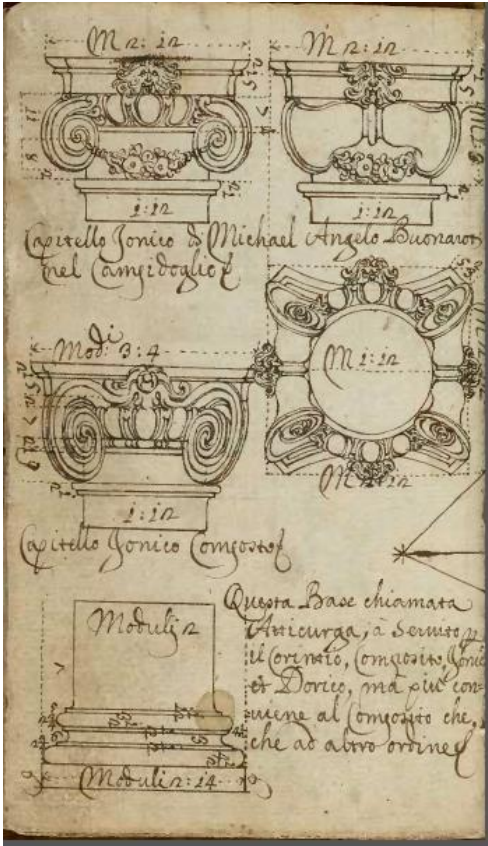 M 2: 12
M 2: 12
1: 12
1: 12
Capitello Jonico di Michael Angelo Buonarot
nel Campidoglio
Modi 3: 4
M 1: 12
1: 12
Capitello Jonico Composto
Questa Base chiamata
Atticurga, à Servito p
il Corintio, Composito, Jonic
et Dorico, mà più con
uiene al Composito che,
che ad altro ordine
Modulj 2
Moduli 2: 14